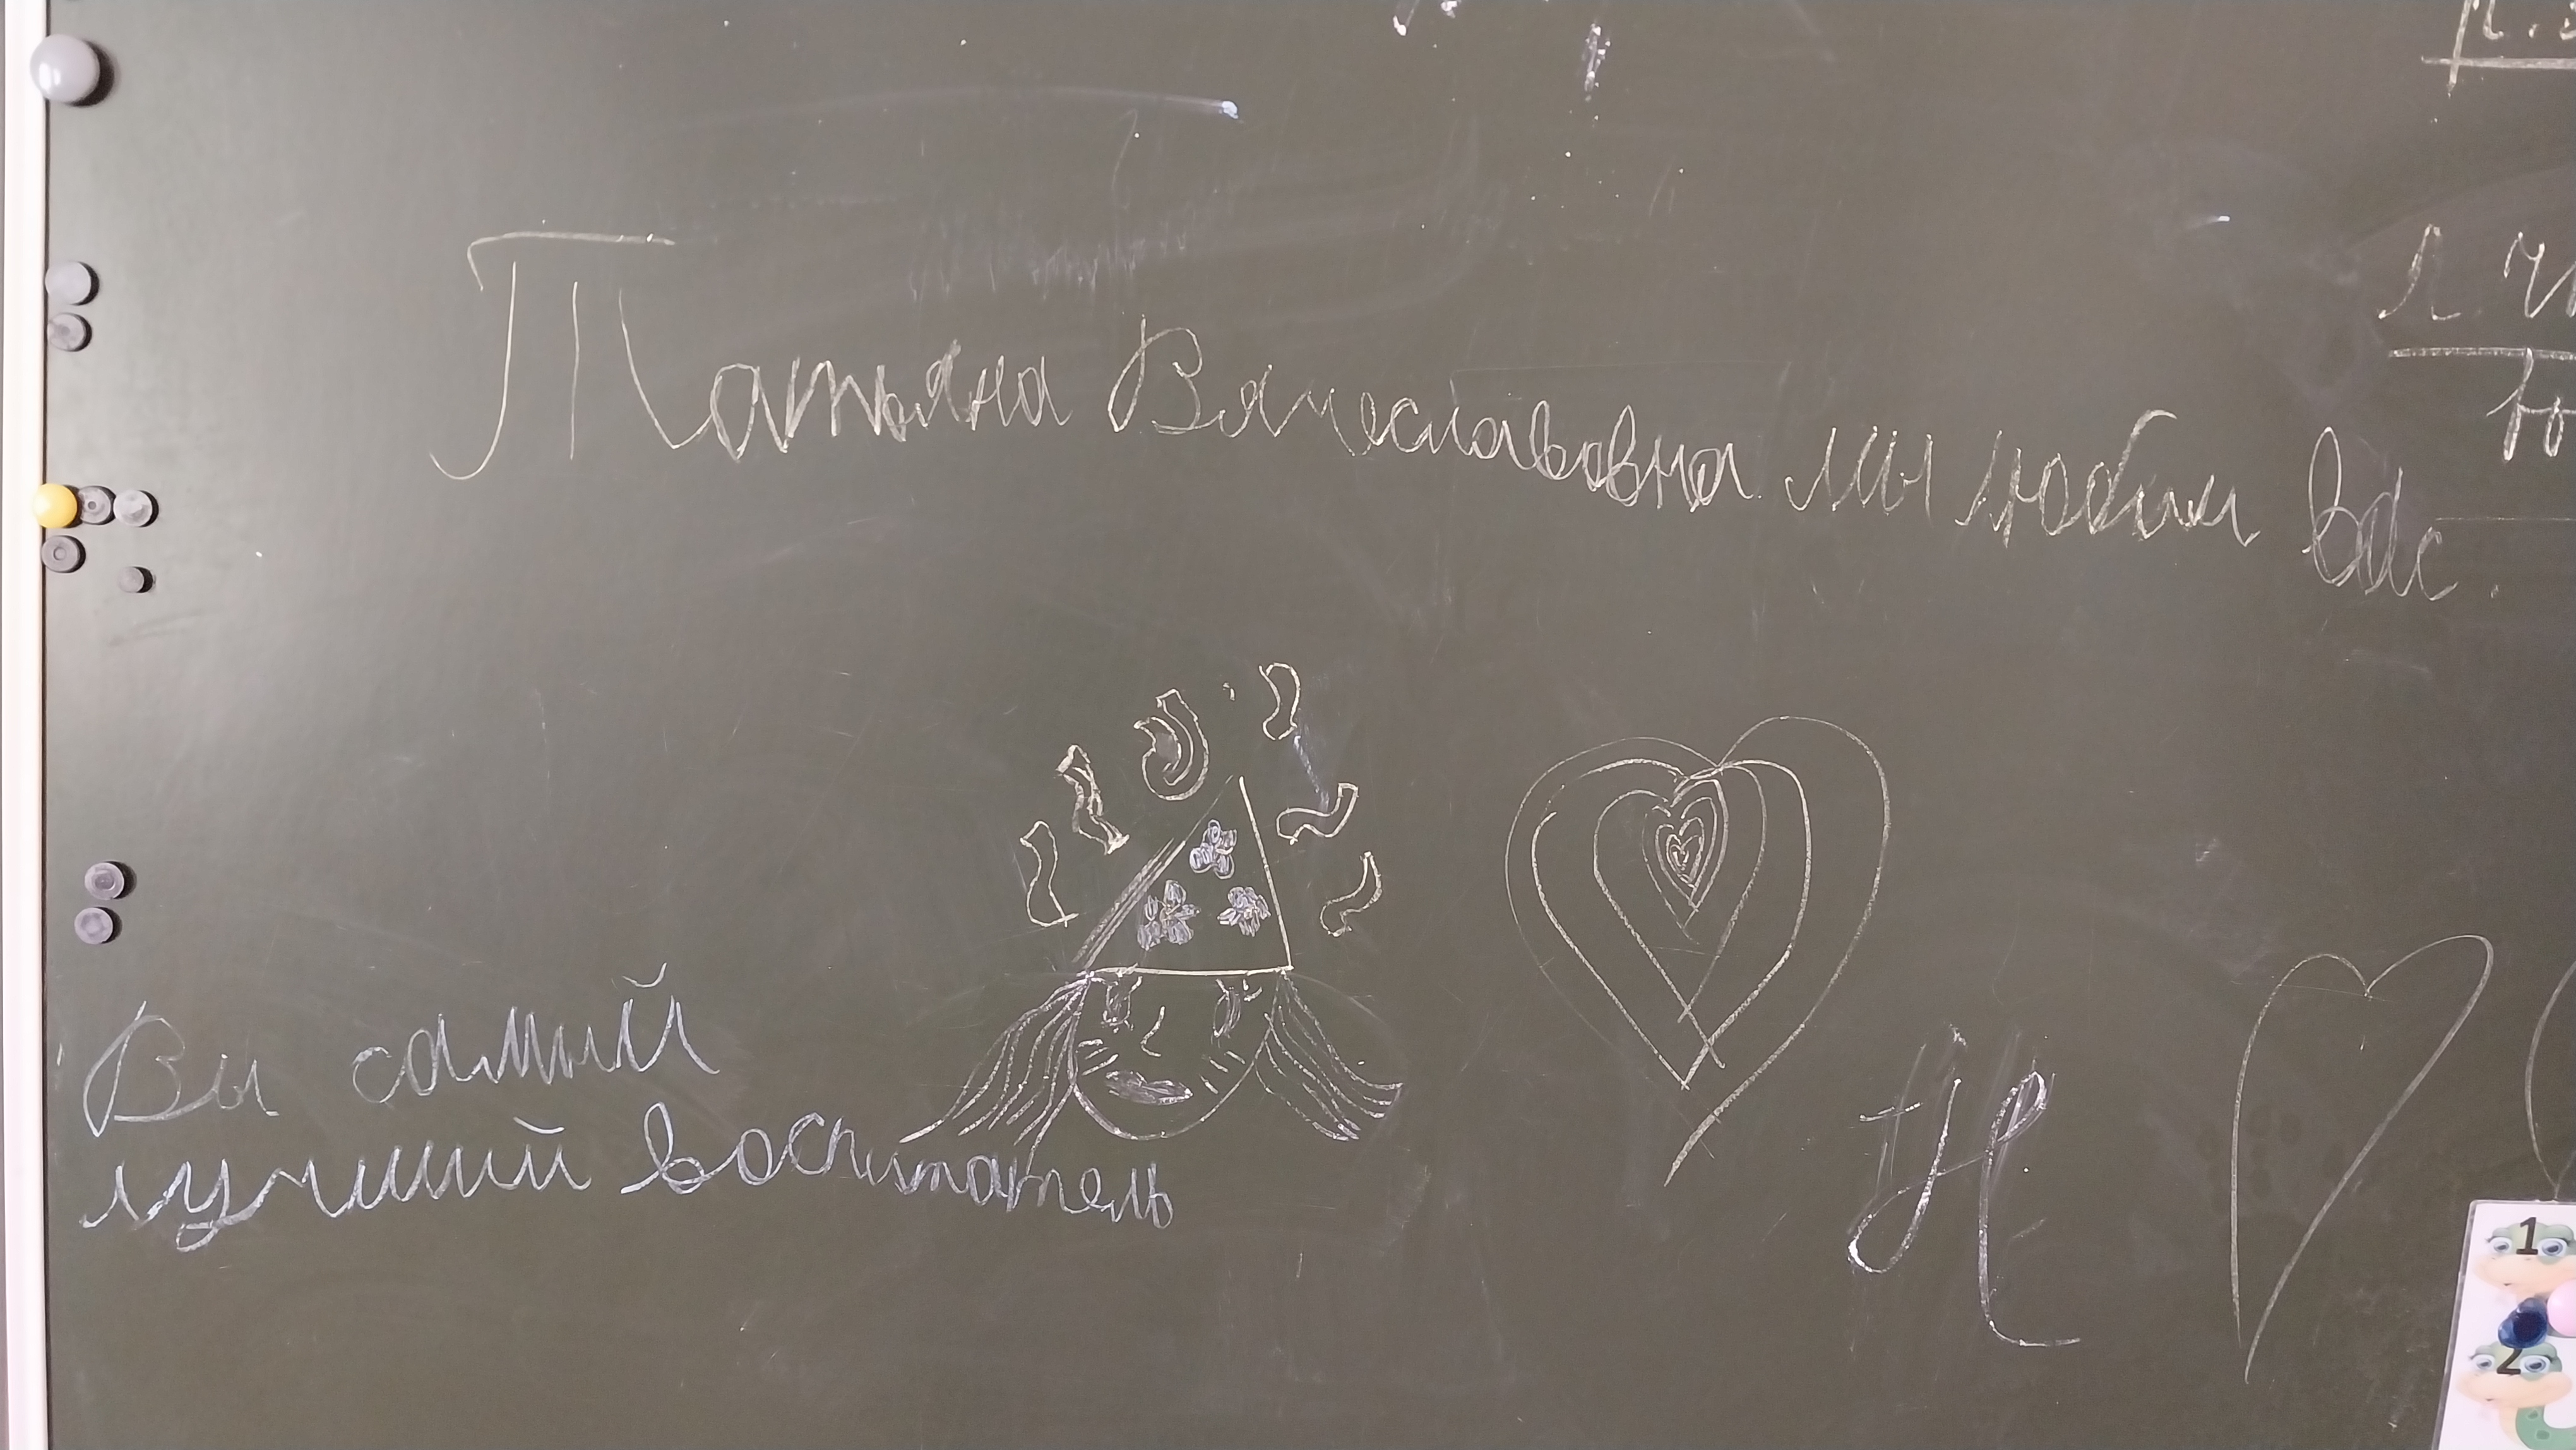 Татьяна Вячеславовна мы любим вас.
Вы самый
лучший воспитатель
Н
1
2